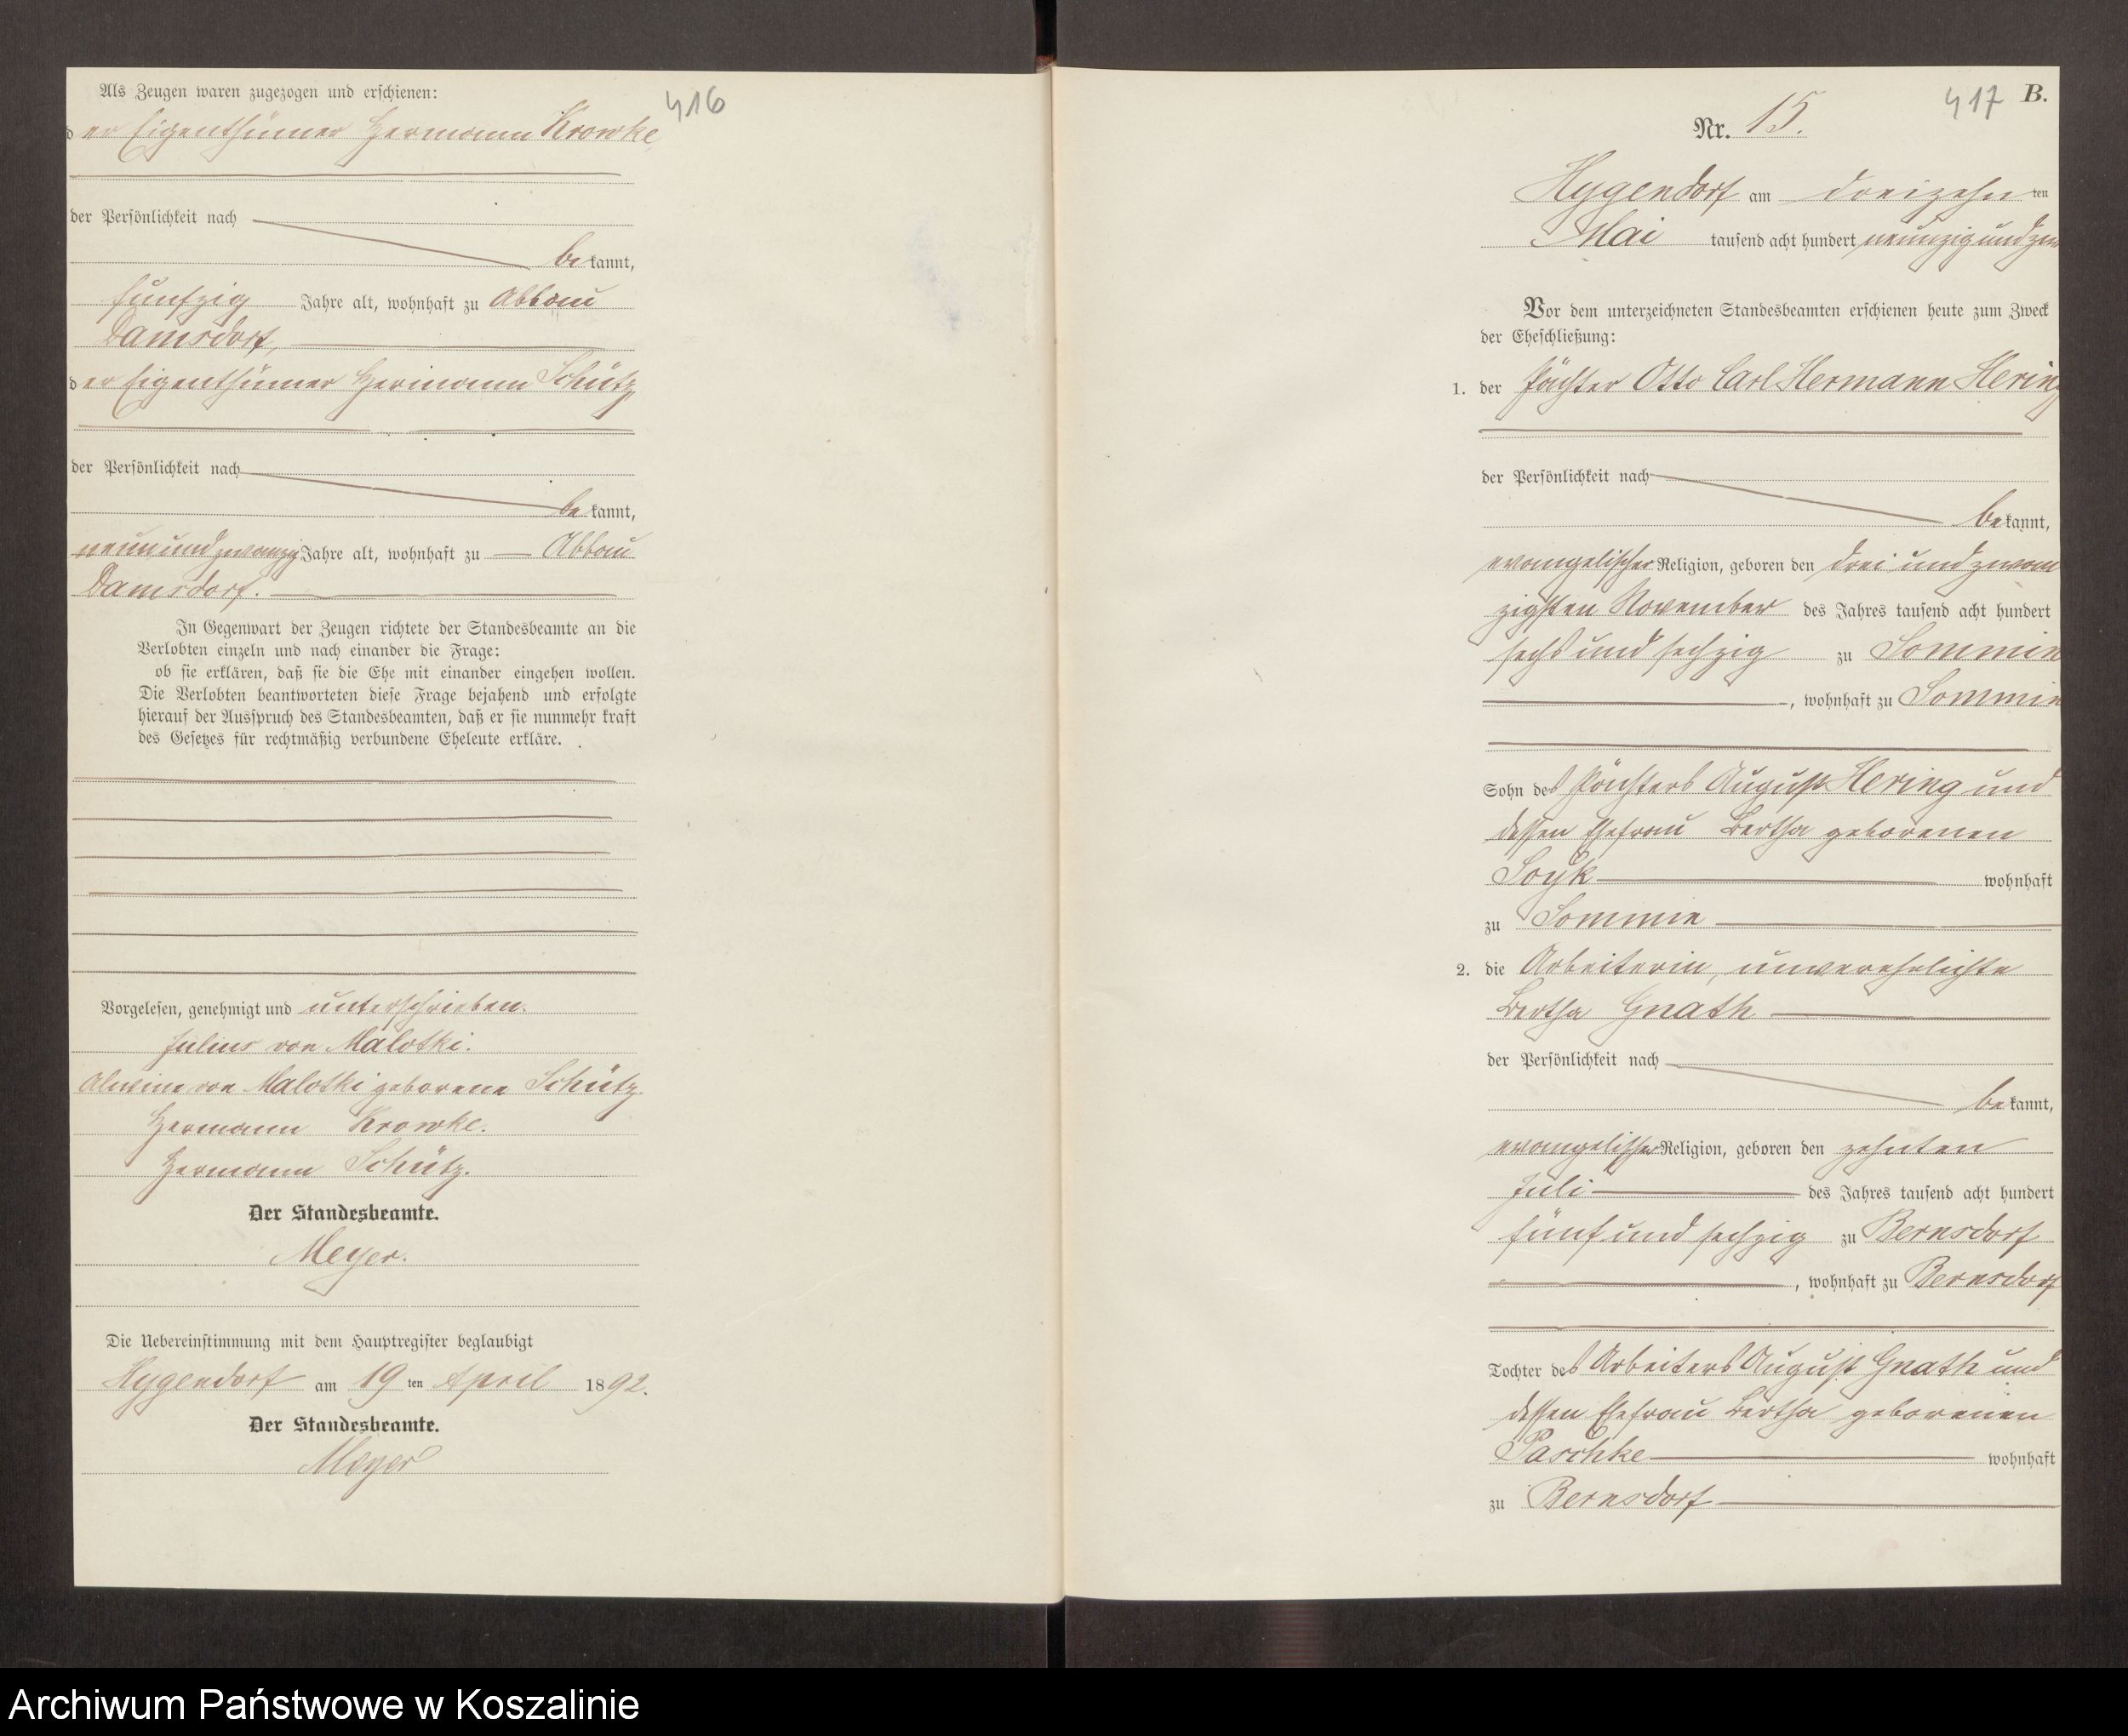 416
Als Zeugen waren zugezogen und erschienen:
der Eigenthümer Hermann Krowke,
der Persönlichkeit nach
bekannt,
funfzig Jahre alt, wohnhaft zu Abbau
Damsdorf,
der Eigenthümer Hermann Schütz,
der Persönlichkeit nach
bekannt,
neunundzwanzig Jahre alt, wohnhaft zu Abbau
Damsdorf.
In Gegenwart der Zeugen richtete der Standesbeamte an die
Verlobten einzeln und nach einander die Frage:
ob sie erklären, daß sie die Ehe mit einander eingehen wollen.
Die Verlobten beantworteten diese Frage bejahend und erfolgte
hierauf der Ausspruch des Standesbeamten, daß er sie nunmehr kraft
des Gesetzes für rechtmäßig verbundene Eheleute erkläre.
Vorgelesen, genehmigt und unterschrieben.
Julius von Malotki.
Alwine von Malotki geborene Schütz.
Hermann Krowke.
Hermann Schütz.
Der Standesbeamte.
Meyer.
Die Uebereinstimmung mit dem Hauptregister beglaubigt
Hygendorf am 19ten April 1892.
Der Standesbeamte.
Meyer
417
B.
Nr. 15.
Hygendorf am dreizehnten
Mai tausend acht hundert neunzig und zw
Vor dem unterzeichneten Standesbeamten erschienen heute zum Zweck
der Eheschließung:
1. der Pächter Otto Carl Hermann Hering
der Persönlichkeit nach
bekannt,
evangelischer Religion, geboren den drei und zwan
zigsten November des Jahres tausend acht hundert
sechs und sechzig zu Sommin
, wohnhaft zu Sommin
Sohn des Pächters August Hering und
dessen Ehefrau Bertha geborenen
Soyk wohnhaft
zu Sommin
2. die Arbeiterin, unverehelichte
Bertha Gnath
der Persönlichkeit nach
bekannt,
evangelischer Religion, geboren den zehnten
Juli des Jahres tausend acht hundert
fünf und sechzig zu Bernsdorf
, wohnhaft zu Bernsdorf
Tochter des Arbeiters August Gnath und
dessen Ehefrau Bertha geborenen
Paschke wohnhaft
zu Bernsdorf
Archiwum Państwowe w Koszalinie